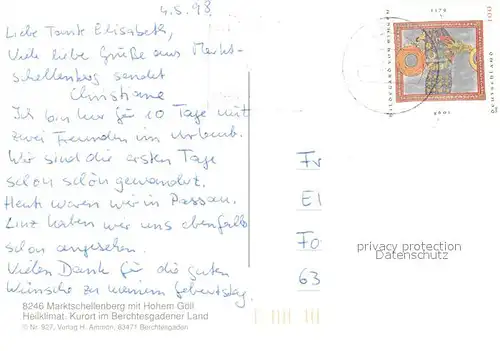 4.5.98
Liebe Tante Elisabeth,
Viele liebe Grüße aus Markt-
schellenberg sendet
Christiane
Ich bin hier für 10 Tage mit
zwei Freunden im Urlaub.
Wir sind die ersten Tage
schon schön gewandert.
Heute waren wir in Passau.
Linz haben wir uns ebenfalls
schon angesehen.
Vielen Dank für die guten
Wünsche zu meinem Geburtstag.
8246 Marktschellenberg mit Hohem Göll
Heilklimat. Kurort im Berchtesgadener Land
© Nr. 927, Verlag H. Ammon, 83471 Berchtesgaden
HILDEGARD VON BINGEN
1098
1179
100
DEUTSCHLAND
Fr
El
Fo
63
privacy protection
Datenschutz